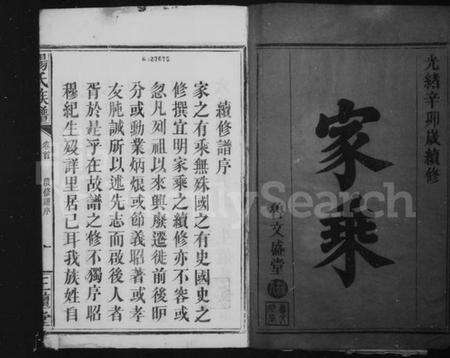 光緒辛卯歲續修
家乘
敦文盛堂
續修譜序
家之有乘無殊國之有史國史之
修撰宜明家乘之續修亦不容或
忽凡列祖以來興廢遷徙前後昭
分或動業炳烺或節義昭著或孝
友肫誠所以述先志而啟後人者
胥於是乎在故譜之修不獨序昭
穆紀生歿詳里居已耳我族姓自
楊氏族譜
卷首
續修譜序
一
三鱣堂
FamilySearch